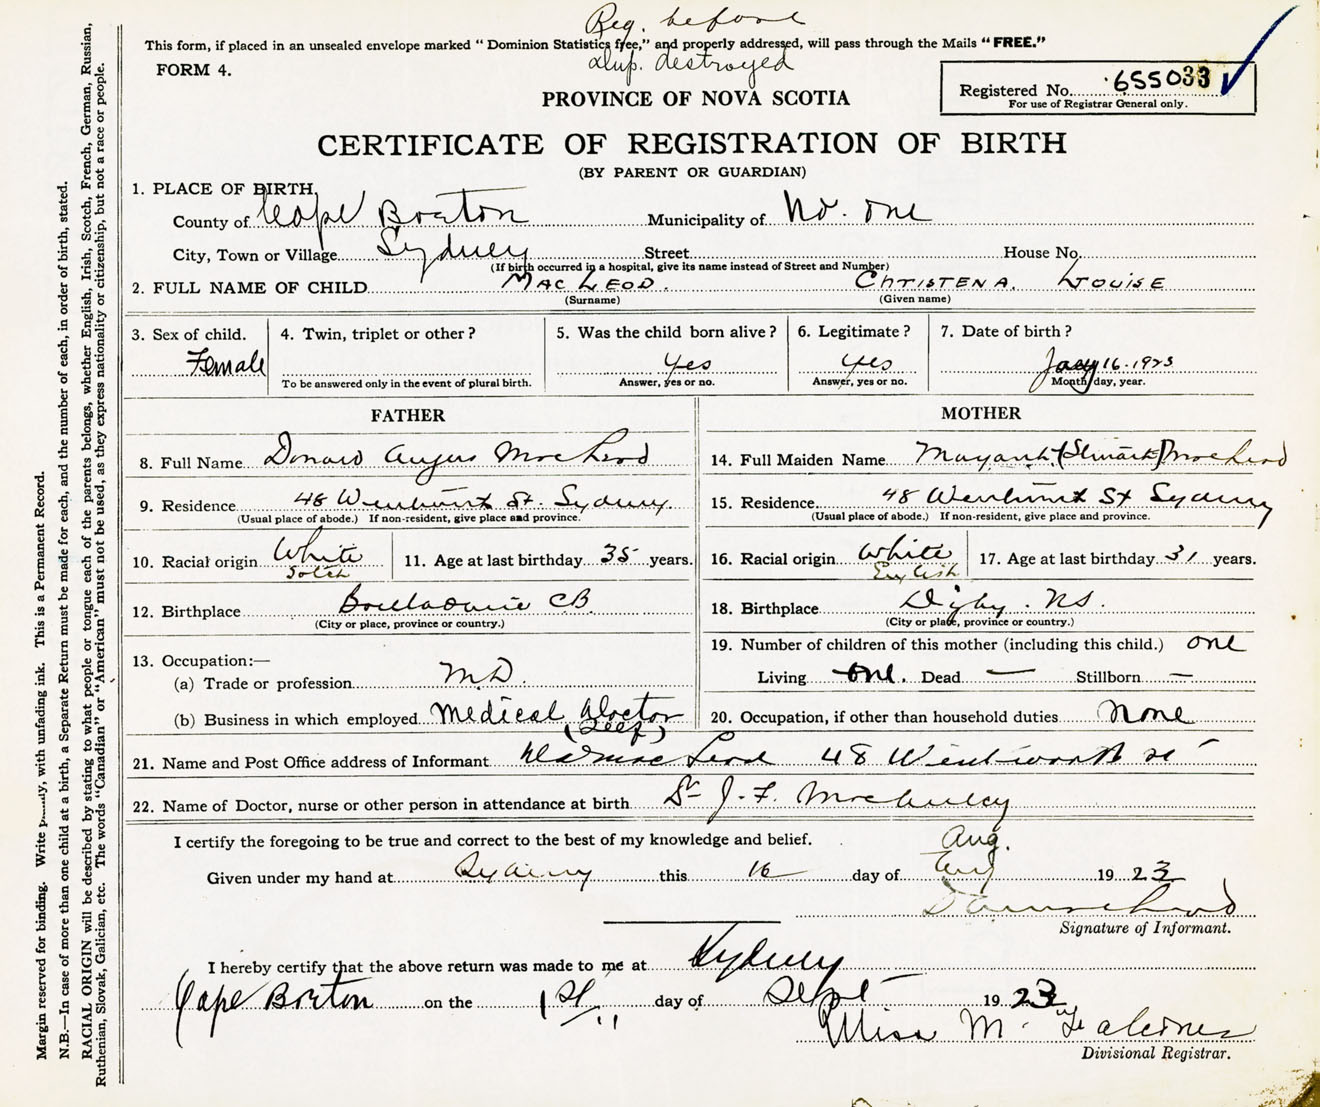 Reg. before
This form, if placed in an unsealed envelope marked "Dominion Statistics free," and properly addressed, will pass through the Mails "FREE."
dup. destroyed
FORM 4.
Registered No. 655033
For use of Registrar General only.
PROVINCE OF NOVA SCOTIA
CERTIFICATE OF REGISTRATION OF BIRTH
(BY PARENT OR GUARDIAN)
1. PLACE OF BIRTH,
County of Cape Breton Municipality of No. one
City, Town or Village Sydney Street House No.
(If birth occurred in a hospital, give its name instead of Street and Number)
2. FULL NAME OF CHILD MacLeod. Christena. Louise
(Surname) (Given name)
3. Sex of child. 4. Twin, triplet or other? 5. Was the child born alive? 6. Legitimate? 7. Date of birth?
Female Yes Yes 16. 1923
To be answered only in the event of plural birth. Answer, yes or no. Answer, yes or no. Month, day, year.
FATHER MOTHER
8. Full Name Donald Angus MacLeod
14. Full Maiden Name MacLeod
9. Residence 48 Wentworth St. Sydney.
(Usual place of abode.) If non-resident, give place and province.
15. Residence 48 Wentworth St Sydney
(Usual place of abode.) If non-resident, give place and province.
10. Racial origin White
Scotch
11. Age at last birthday 35 years.
16. Racial origin White
English
17. Age at last birthday 31 years.
12. Birthplace CB.
(City or place, province or country.)
18. Birthplace Digby. NS.
(City or place, province or country.)
13. Occupation:—
(a) Trade or profession M.D.
(b) Business in which employed Medical Doctor
(Self)
19. Number of children of this mother (including this child.) one
Living one. Dead — Stillborn —
20. Occupation, if other than household duties None
21. Name and Post Office address of Informant DA MacLeod 48 Wentworth St
22. Name of Doctor, nurse or other person in attendance at birth Dr J. F.
I certify the foregoing to be true and correct to the best of my knowledge and belief.
Aug.
Given under my hand at Sydney this 16 day of Aug 1923
D A MacLeod
Signature of Informant.
I hereby certify that the above return was made to me at Sydney
Cape Breton on the 1st day of Sept 1923
Miss M.
Divisional Registrar.
Margin reserved for binding. Write with unfading ink. This is a Permanent Record.
N.B.—In case of more than one child at a birth, a Separate Return must be made for each, and the number of each, in order of birth, stated.
RACIAL ORIGIN will be described by stating to what people or tongue each of the parents belongs, whether English, Irish, Scotch, French, German, Russian,
Ruthenian, Slovak, Galician, etc. The words "Canadian" or "American" must not be used, as they express nationality or citizenship, but not a race or people.